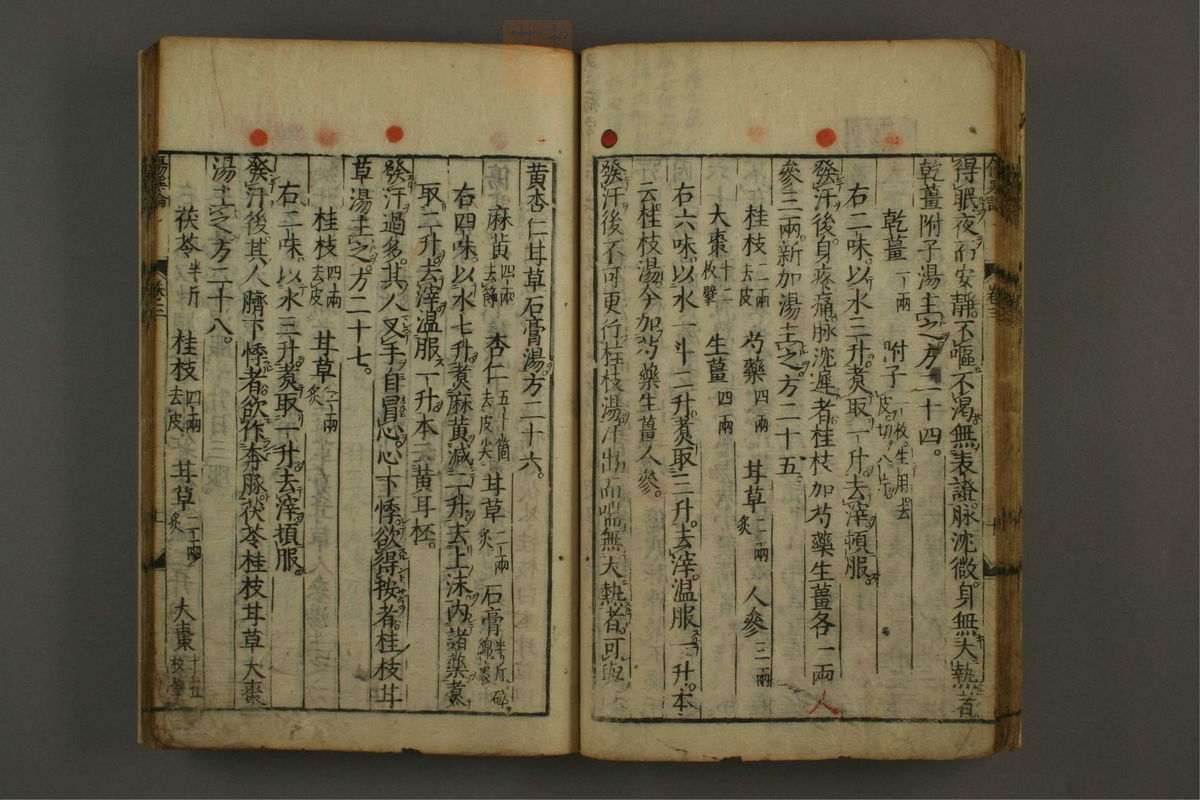 得眠夜而安靜不嘔不渴無表證脉沈微身無大熱者
乾薑附子湯主之方二十四。
乾薑一兩 附子一枚生用去皮切八片
右二味以水三升煑取一升去滓頓服
發汗後身疼痛脉沈遲者桂枝加芍藥生薑各一兩人
參三兩新加湯主之方二十五
桂枝三兩去皮 芍藥四兩 甘草二兩炙 人參三兩
大棗十二枚擘 生薑四兩
右六味以水一斗二升煑取三升去滓温服一升本
云桂枝湯今加芍藥生薑人參。
發汗後不可更行桂枝湯汗出而喘無大熱者可與
黃杏仁甘草石膏湯方二十六。
麻黃四兩去節 杏仁五十箇去皮尖 甘草二兩炙 石膏半斤碎綿裹
右四味以水七升煑麻黃減二升去上沫内諸藥煑
取二升去滓温服一升本 黃耳杯。
發汗過多其人叉手自冒心心下悸欲得按者桂枝甘
草湯主之方二十七。
桂枝四兩去皮 甘草二兩炙
右二味以水三升煑取一升去滓頓服。
發汗後其人臍下悸者欲作奔豚茯苓桂枝甘草大棗
湯主之方二十八。
茯苓半斤 桂枝四兩去皮 甘草二兩炙 大棗十五枚擘
傷寒論 卷三